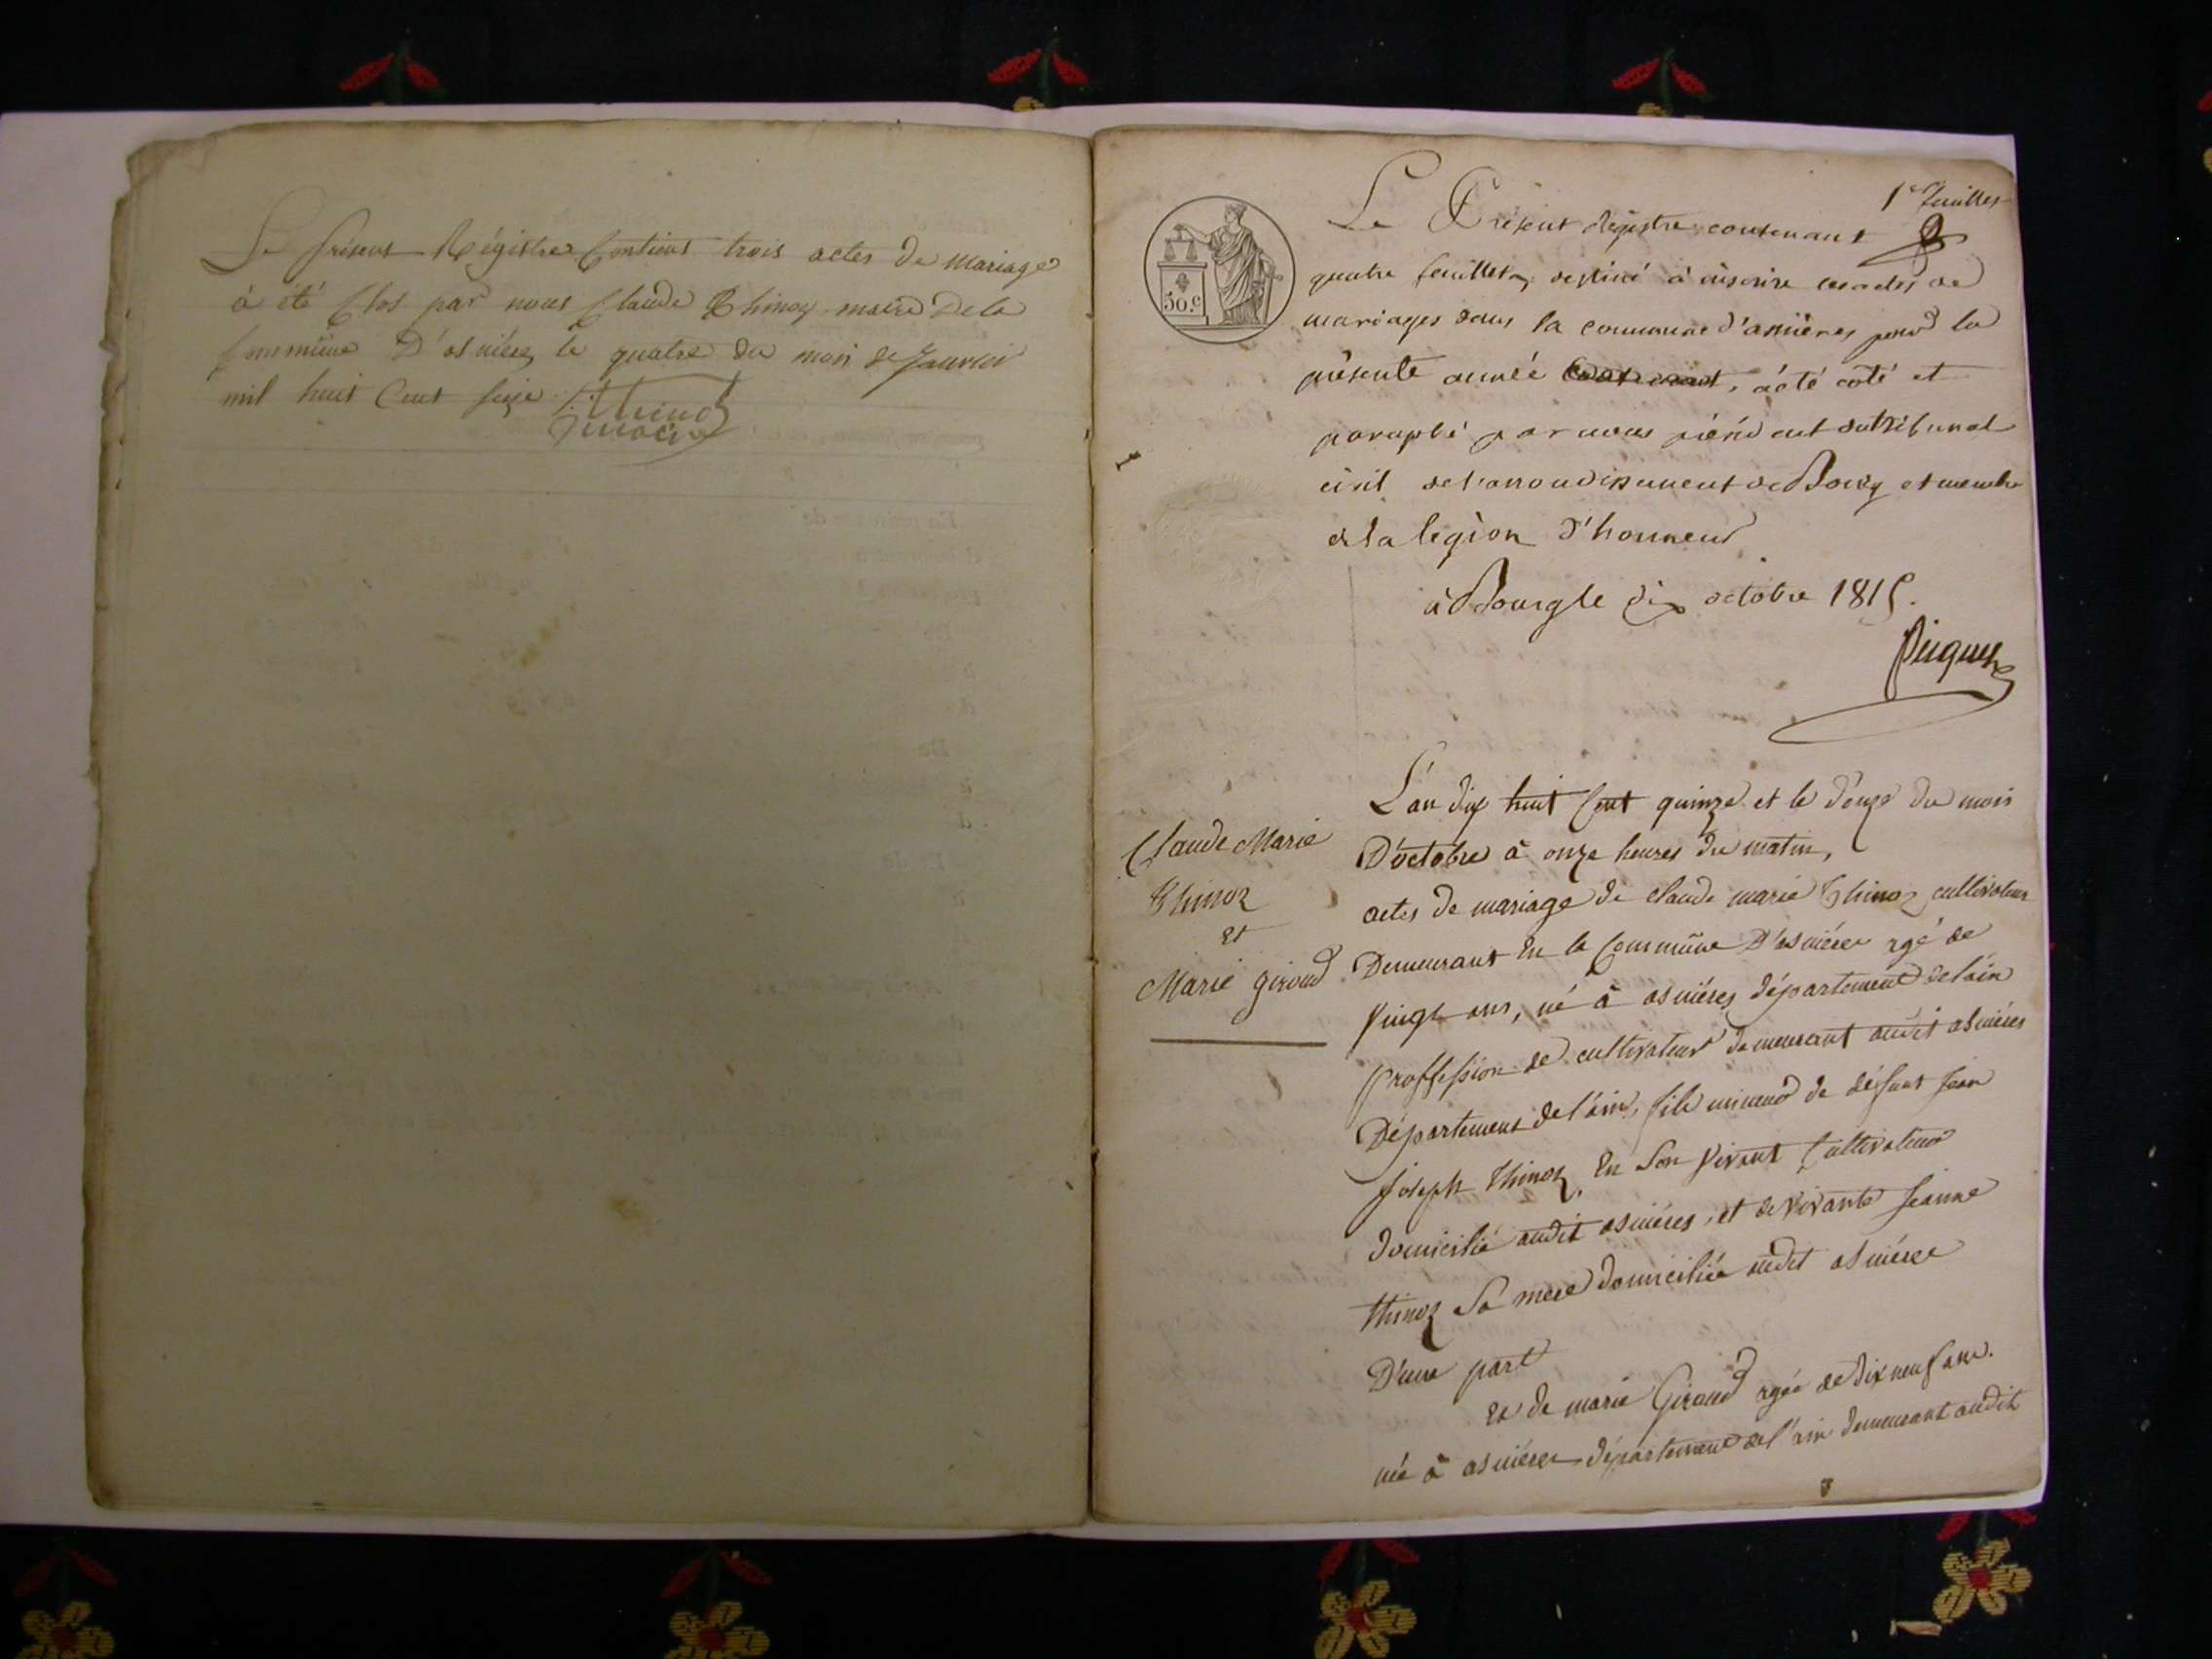 Le présent Régistre Contient trois actes de mariage
à été Clos par nous Claude Thinoz maire De la
Commüne D'asnières, le quatre du mois de Janvier
mil huit Cent seize
Thinoz
maire
1er feuillet
Le Présent Registre contenant
quatre feuillets, destiné à inscrire les actes de
mariages dans la commune d'asnières pour la
présente année à été coté et
paraphé par nous président du tribunal
civil de l'arrondissement de Bourg et membre
de la legion d'honneur
à Bourg le dix octobre 1815.
50.c
Claude Marie
Thinoz
et
Marie giroud
L'an dix huit Cent quinze et le douze du mois
D'octobre à onze heures du matin,
actes de mariage de claude marie Thinoz cultivateur
Demeurant En la Commüne D'asnières agé de
vingt ans, né à asnières, département de l'ain
proffession de cultivateur demeurant audit asnières
Département de l'ain, fils mineur de défunt jean
joseph thinoz, En Son vivant Cultivateur
domicilié audit asnières, et de vivante jeanne
thinoz Sa mere domiciliée audit asnières
D'une part
Et de marie Giroud agée de dix neuf ans.
née à asnières département de l'ain demeurant audit